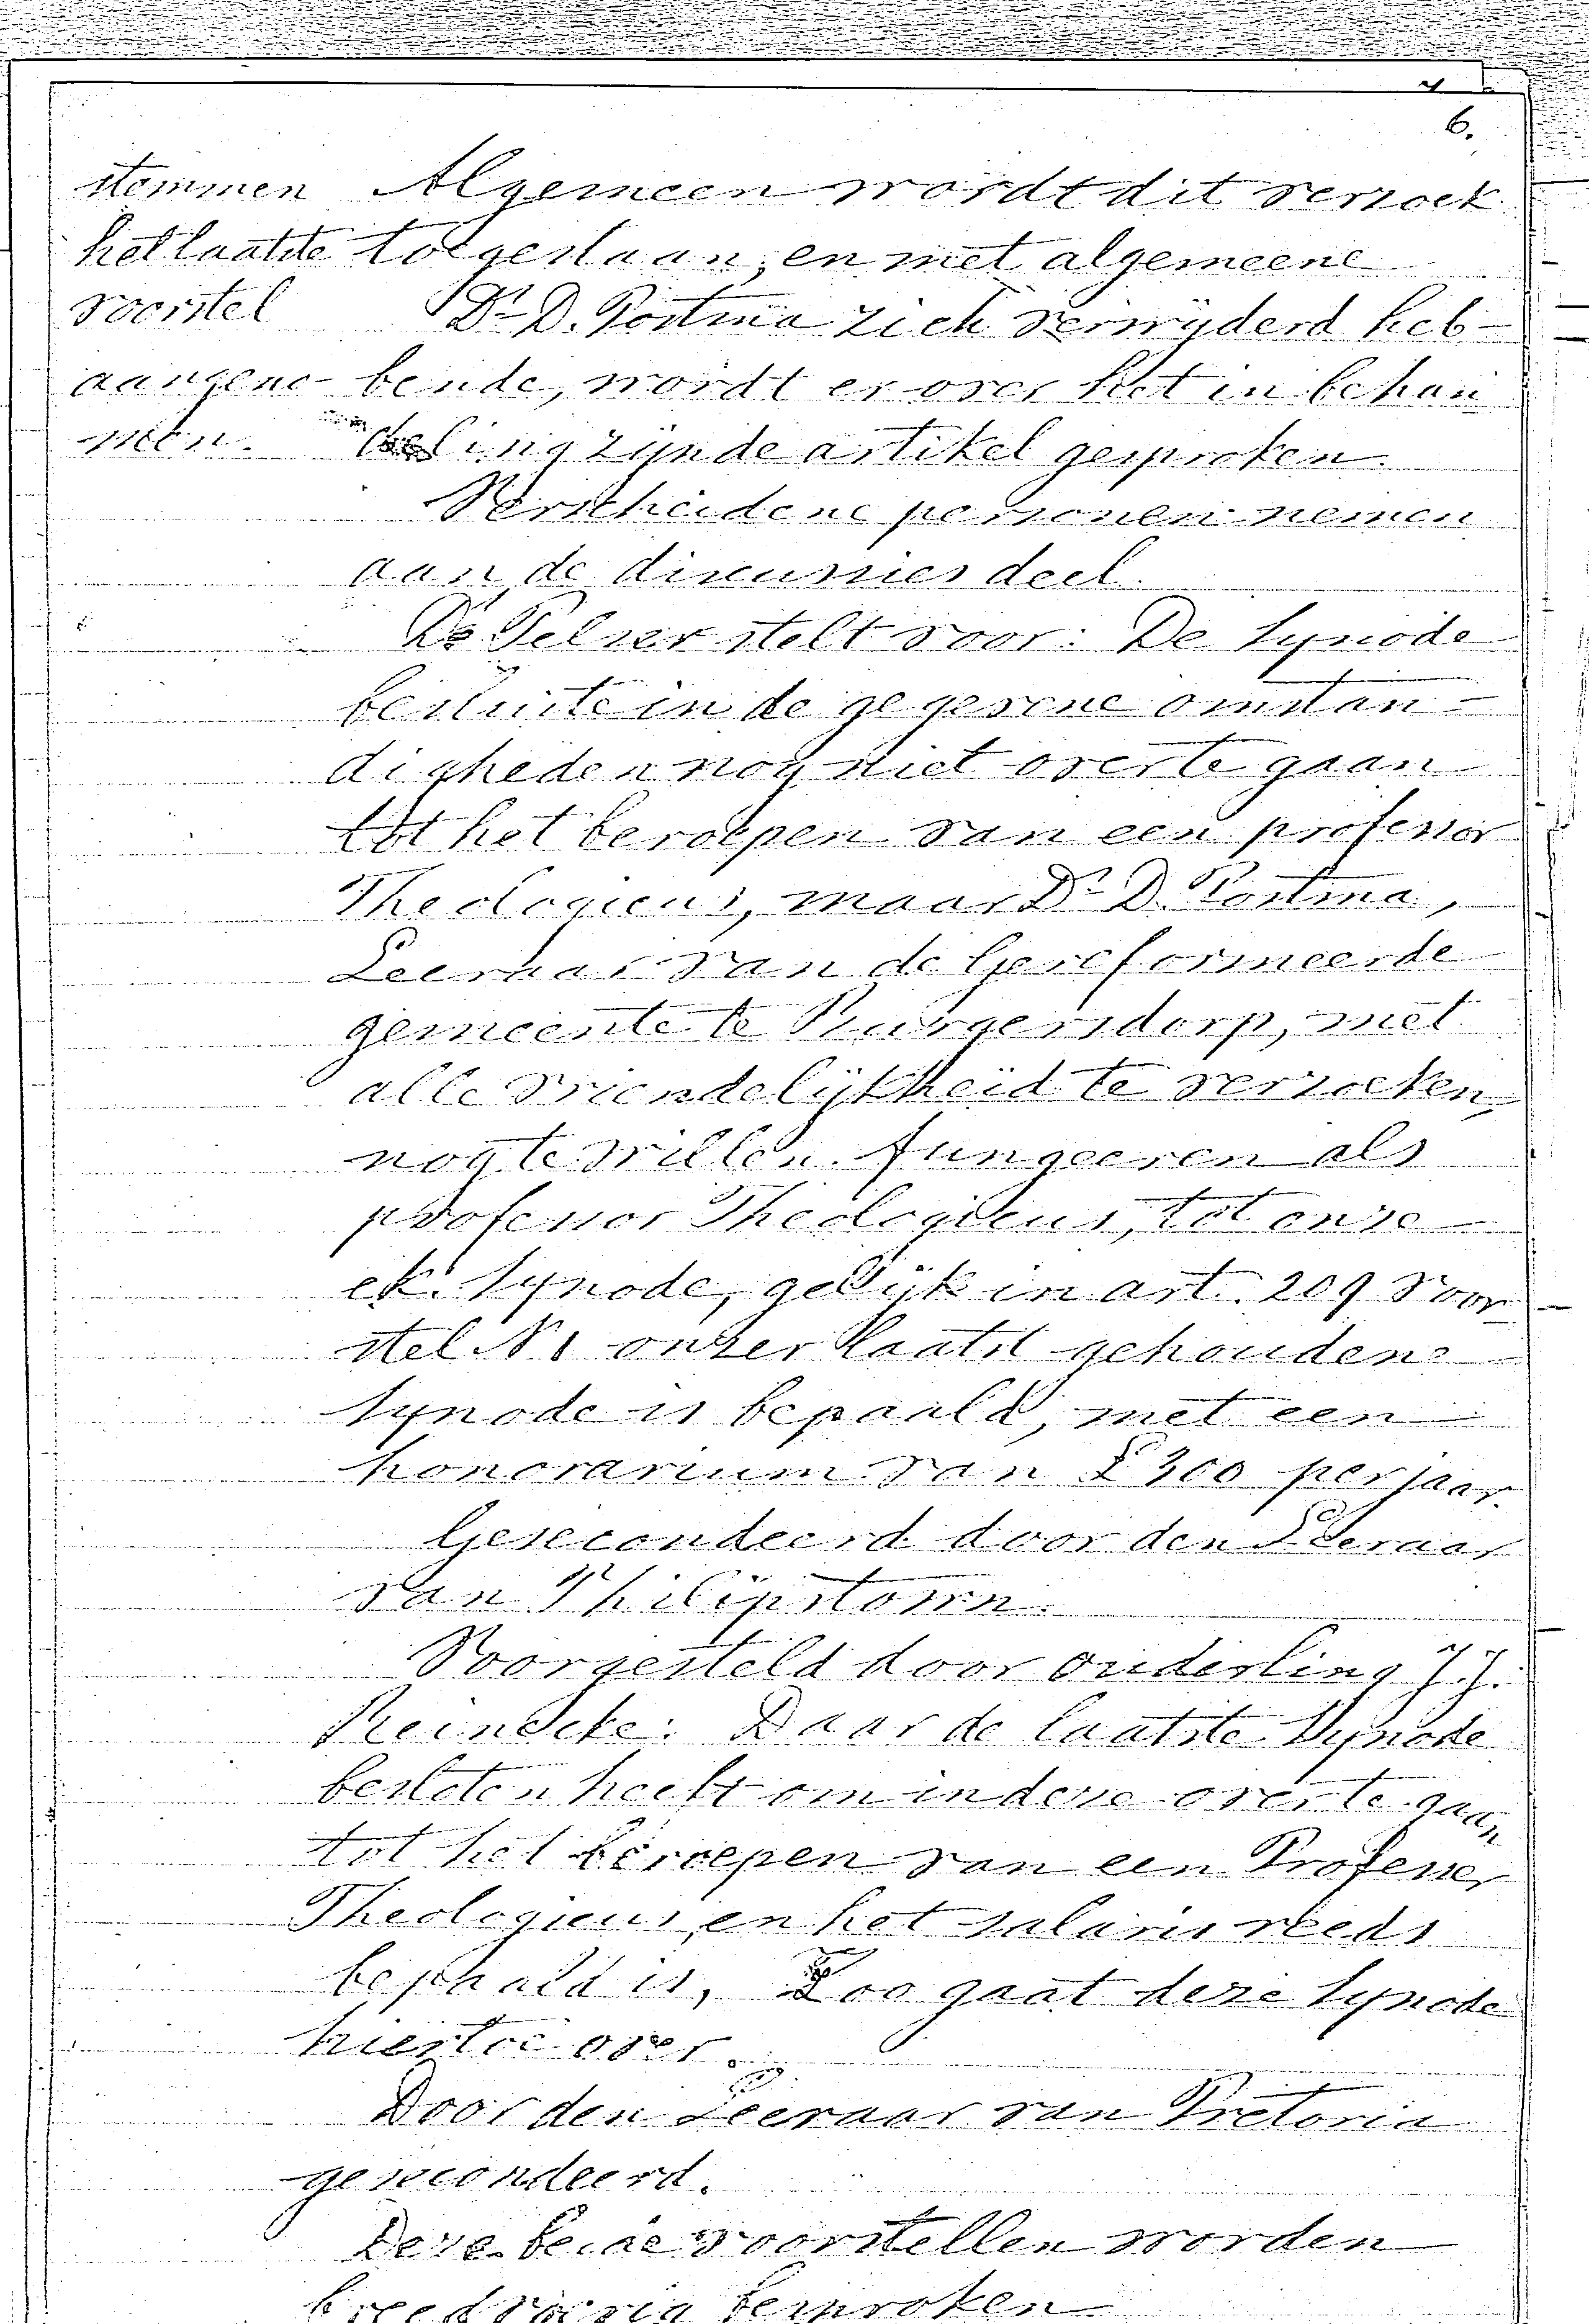 6.
stemmen Algemeen wordt dit verzoek
het laatste toegestaan, en met algemeene
voorstel Ds D. Postma zich verwijderd heb-
aangeno- bende, wordt er over het in behan
men. deling zijnde artikel gesproken.
Verscheidene personen nemen
aan de discussies deel.
Ds Pelser stelt voor: De Synode
besluite in de gegevene omstan-
digheden nog niet over te gaan
tot het beroepen van een professor
Theologicus, maar Ds D. Postma,
Leeraar van de Gereformeerde
gemeente te Burgersdorp, met
alle vriendelijkheid te verzoeken,
nog te willen fungeeren als
professor Theologicus, tot onze
ek. Synode, gelijk in art. 209 Voor
stel No 1 onzer laatst gehoudene
Synode is bepaald, met een
honorarium van £300 per jaar.
Gesecondeerd door den Leeraar
van Philipstown.
Voorgesteld door ouderling J. J.
Reinecke: Daar de laatste Synode
besloten heeft om in deze over te gaan
tot het beroepen van een Professor
Theologicus, en het salaris reeds
bepaald is, Zoo gaat deze Synode
hiertoe over.
Door den Leeraar van Pretoria
gesecondeerd.
Deze beide voorstellen worden
breedvoerig besproken.